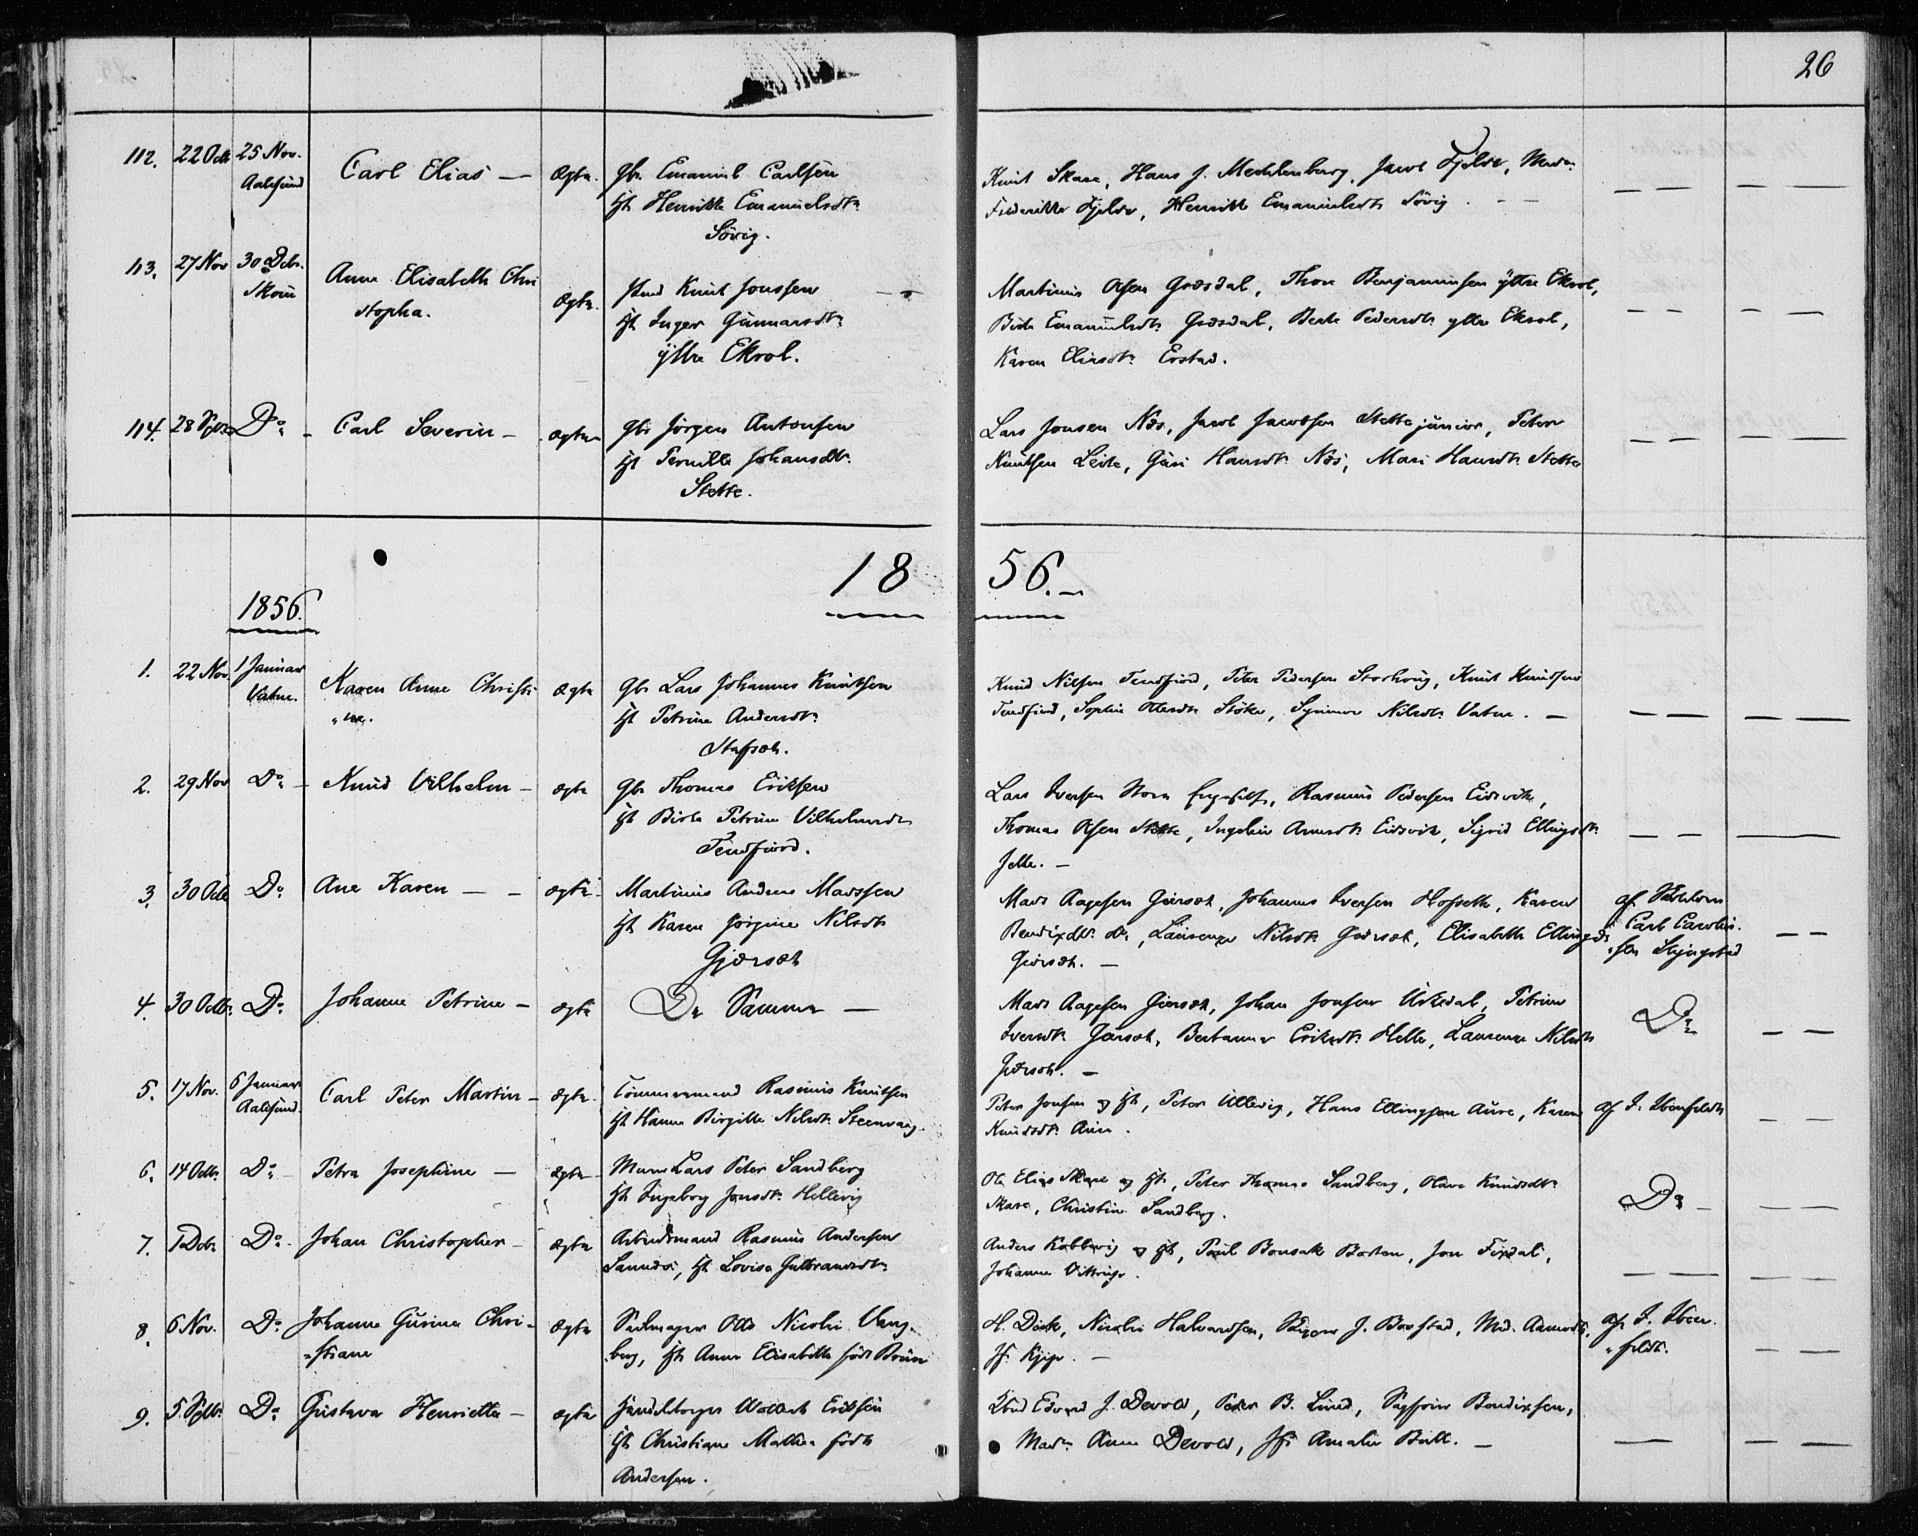 26
112. 22 Octb 25 Nov. Aalesund Carl Elias — Ægte. Gbr. Emanuel Carlsen
Ht Henrikke Emanuelsdtr
Sövig.
Knut Skare, Hans J. Mechlenburg, Jacob Fjelde, Mad.
Frederikke Fjelde, Henrikke Emanuelsdtr Sövig. - -
113. 27 Nov 30 Decbr. Skoue Anne Elisabeth Chri
stopha. Ægte. Knut Jonssen
Ht Inger Gunnarsdtr
ÿttre Ekrol.
Martinus Olsen Græsdal, Thore Benjaminsen ÿttre Ekrol,
Birte Emanuelsdtr Græsdal, Berte Pedersdtr yttre Ekrol,
Karen Eliasdtr Erstad.
114. 28 Do - Carl Severin - ægte Gbr Jörgen Antonsen
Ht Pernille Johansdtr.
Stette.
Lars Jonsen Næs, Jacob Jacobsen Stette junior, Peter
Knutsen Leite, Guri Hansdtr Næs, Mari Hansdtr Stette
18 56.-
1856.
1. 22 Nov. 1 Januar Vatne. Karen Anne Christi
"ne. ægte Gbr Lars Johannes Knutsen
Ht Petrine Andersdtr
Stafset.
Knud Nilsen Tendfiord, Peter Pedersen Storhoug, Knut Knudsen
Tendfiord, Sophie Stöke, Synnøve Nilsdtr Vatne. -
2. 29 Nov Do - Knud Vilhelm - ægte Gbr Thomas Eriksen
Ht Birte Petrine Vilhelmsdtr
Tendfiord.
Lars Iversen Rasmus Pedersen Eidsvik,
Thomas Olsen Stette, Ingeline Eidsvik, Sigrid Ellingsdtr
Jelle. -
3. 30 Octb Do Ane Karen - - ægte Martinus Andreas Madssen
Ht Karen Jörgine Nilsdtr
Gjærset
Mads Aagesen Giærset, Johannes Iversen Hofseth, Karen
Bendixdtr do, Laurence Nilsdtr Giærset, Elisabeth Ellingsdtr
Giærset. -
af
Carl Carolius
"sen
4. 30 Octb. Do Johanne Petrine - ægte Do Samme -
Mads Aagesen Giærset, Johan Jonsen Urkedal, Petrine
Iversdtr Gjærset, Eriksdtr Helle, Laurence Nilsdtr
Giærset. -
Do
5. 17 Nov. 6 Januar Aalesund. Carl Peter Martin - ægte. Tömmermand Rasmus Knutsen
Ht Hanna Birgitte Nilsdtr Steenvaag.
Peter Jonsen og Ht, Peter Ullevig, Hans Ellingsen Aure, Karen
Knudsdtr Aure.
af I. Ibenfeldt
6. 14 Octb. Do - Petra Josephine - ægte Muurm Lars Peter Sandberg
Ht Ingeborg Jonsdtr Hellevig
Ole Elias Skare og Ht, Peter Thomas Sandberg, Olave Knudsdtr
Skare, Christine Sandberg.
Do -
7. 1 Decbr Do - Johan Christopher - ægte Arbeidsmand Rasmus Andersen
Ht Lovise Gulbrandsdtr
Anders Kobbevig og Ht, Povl Bonsak Jon Fixdal,
Johanne
8. 6 Nov. Do Johanne Gurine Chri-
"stiane Ægte Seilmager Otto Nicolai Vang-
berg, Ht Anne Elisabeth födt Bruun
H. Dick, Nicolai Halvardsen, J. Baastad, Mad.
Jf. -
af I. Iben-
"feldt.
9. 5 Septb. Do Gustava Henriette - ægte Handelsborger Eriksen
Ht Christiane Mathea födt
Andersen.
Edvard J. Devold, Peter B. Lund, Bendixsen,
Mad. Anne Devold, Jf. Amalie Bull. -